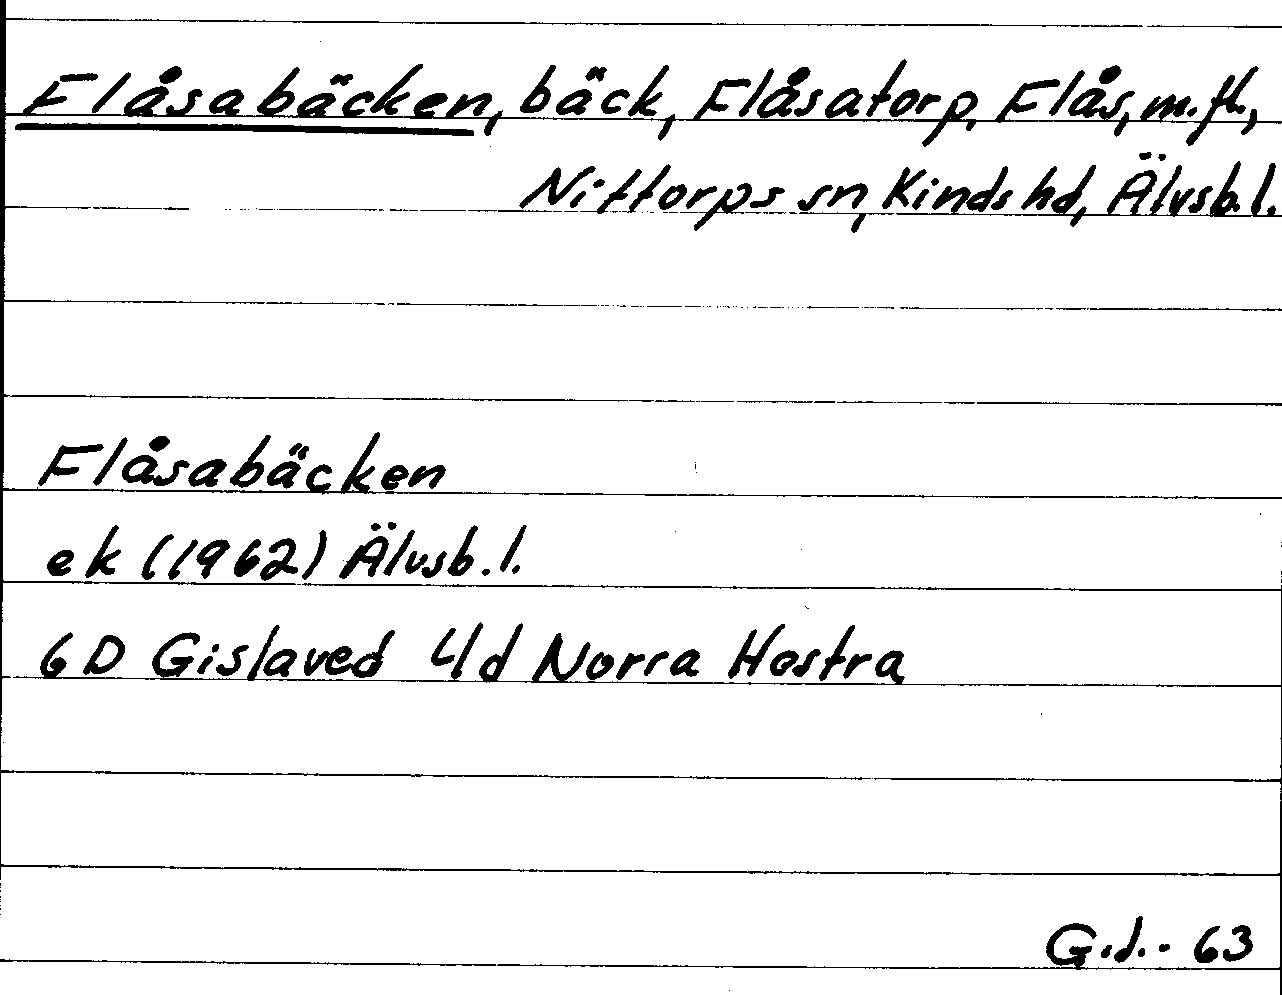 Flåsabäcken, bäck, Flåsatorp, Flås, m.fl.,
Nittorps sn, Kinds hd, Älvsb. l.
Flåsabäcken
ek (1962) Älvsb. l.
6D Gislaved 4d Norra Hestra
G.J.- 63